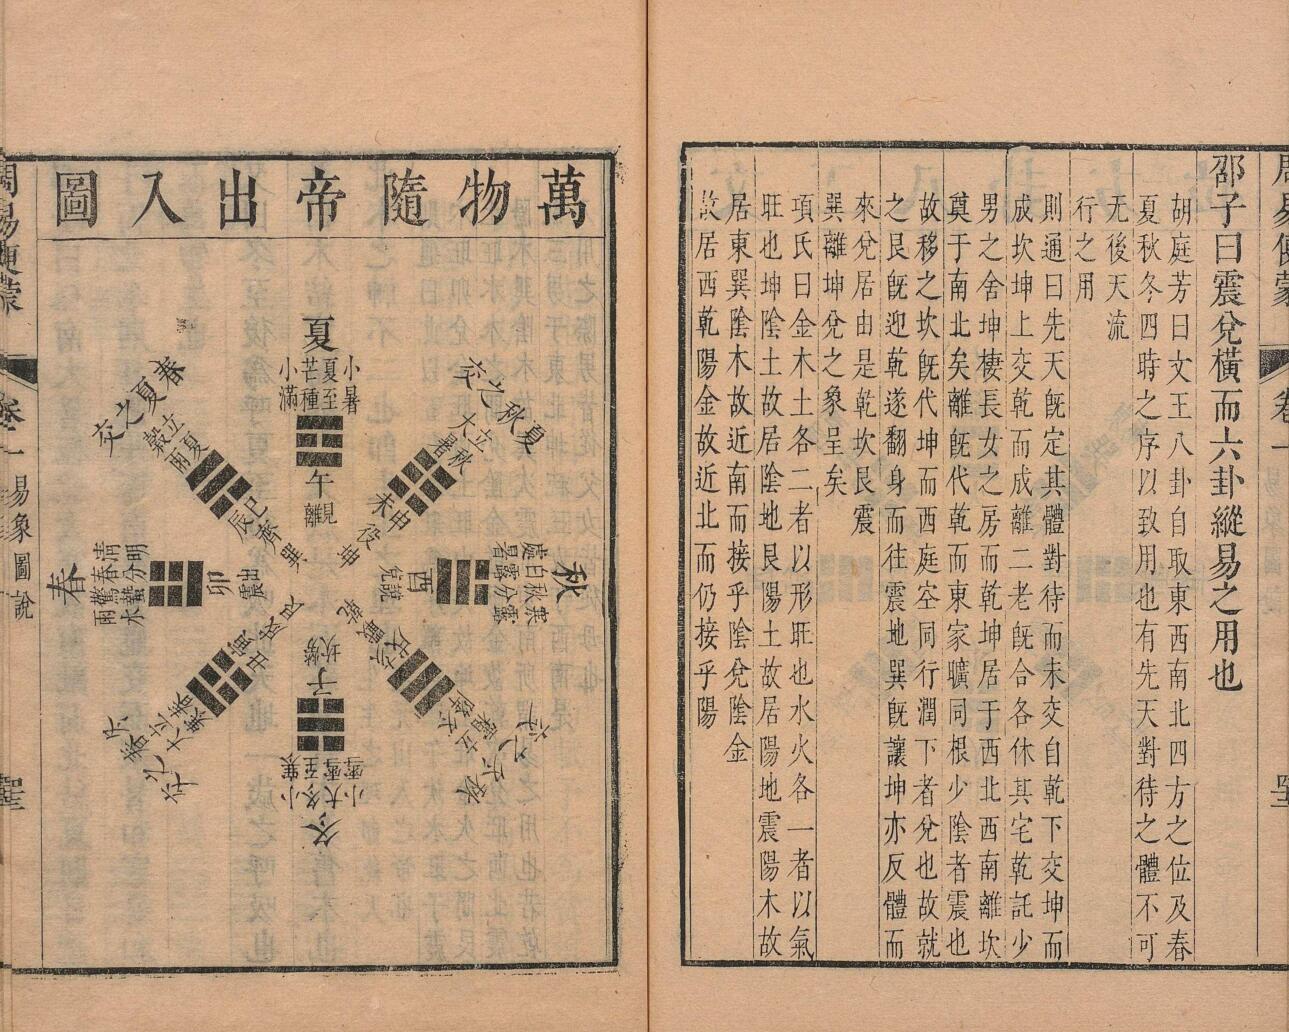 邵子曰震兌橫而六卦縱易之用也
胡庭芳曰文王八卦自取東西南北四方之位及春
夏秋冬四時之序以致用也有先天對待之體不可
無後天流
行之用
則通曰先天旣定其體對待而未交自乾下交坤而
成坎坤上交乾而成離二老旣合各休其宅乾託少
男之舍坤棲長女之房而乾坤居于西北西南離坎
奠于南北矣離旣代乾而東家曠同根少陰者震也
故移之坎旣代坤而西庭空同行潤下者兌也故就
之艮旣迎乾遂翻身而往震地巽旣讓坤亦反體而
來兌居由是乾坎艮震
巽離坤兌之象呈矣
項氏曰金木土各二者以形旺也水火各一者以氣
旺也坤陰土故居陰地艮陽土故居陽地震陽木故
居東巽陰木故近南而接乎陰兌陰金
故居西乾陽金故近北而仍接乎陽
周易便蒙
卷一
易象圖說
萬物隨帝出入圖
夏
小暑
夏至
芒種
小滿
午
離見
夏秋之交
立秋
大暑
未申
坤役
秋
寒露
秋分
白露
處暑
酉
兌說
秋冬之交
立冬
霜降
戌亥
乾戰
冬
小雪
大雪
冬至
小寒
子
坎勞
冬春之交
立春
大寒
丑寅
艮成
春
清明
春分
驚蟄
雨水
卯
震出
春夏之交
立夏
穀雨
辰巳
巽齊